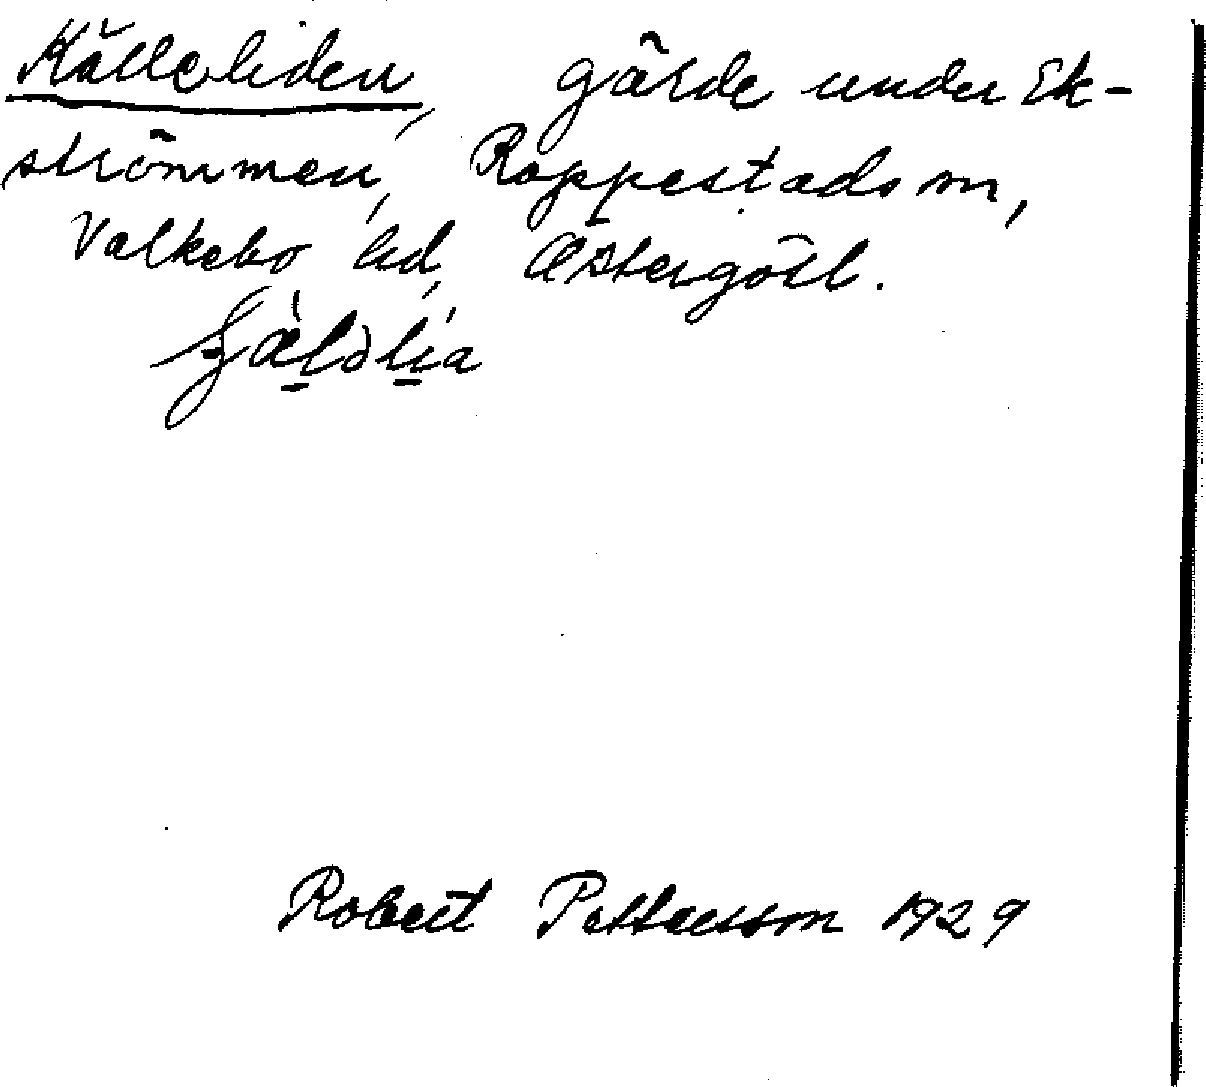 Källeliden, gärde under Ek-
strömmen, Rappestads sn,
Valkebo hd, Östergötl.
Robert Pettersson 1929